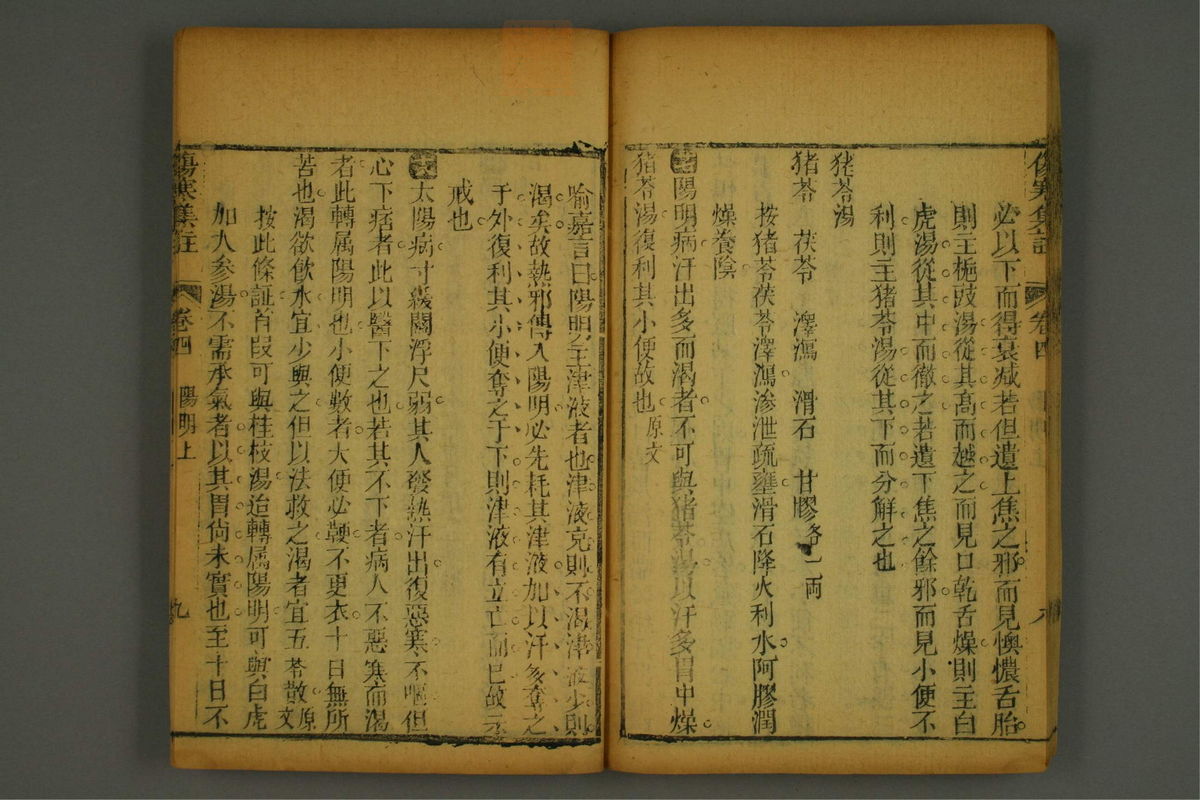 傷寒集註 卷四
必以下而得衰减若但遺上焦之邪而見懊憹舌胎
則主梔豉湯從其高而越之而見口乾舌燥則主白
虎湯從其中而徹之若遺下焦之餘邪而見小便不
利則主猪苓湯從其下而分解之也
猪苓湯
猪苓 茯苓 澤瀉 滑石 甘膠各一兩
按猪苓茯苓澤瀉渗泄疏壅滑石降火利水阿膠潤
燥養陰
陽明病汗出多而渴者不可與猪苓湯以汗多胃中燥
猪苓湯復利其小便故也原文
喻嘉言曰陽明主津液者也津液充則不渴津液少則
渴矣故熱邪傳入陽明必先耗其津液加以汗多奪之
于外復利其小便奪之于下則津液有立亡而已故示
戒也
太陽病寸緩關浮尺弱其人發熱汗出復惡寒不嘔但
心下痞者此以醫下之也若其不下者病人不惡寒而渴
者此轉属陽明也小便數者大便必鞕不更衣十日無所
苦也渴欲飲水宜少與之但以法救之渴者宜五苓散原文
按此條証首段可與桂枝湯迨轉属陽明可與白虎
加人参湯不需承氣者以其胃尙未實也至十日不
傷寒集註 卷四 陽明上 九